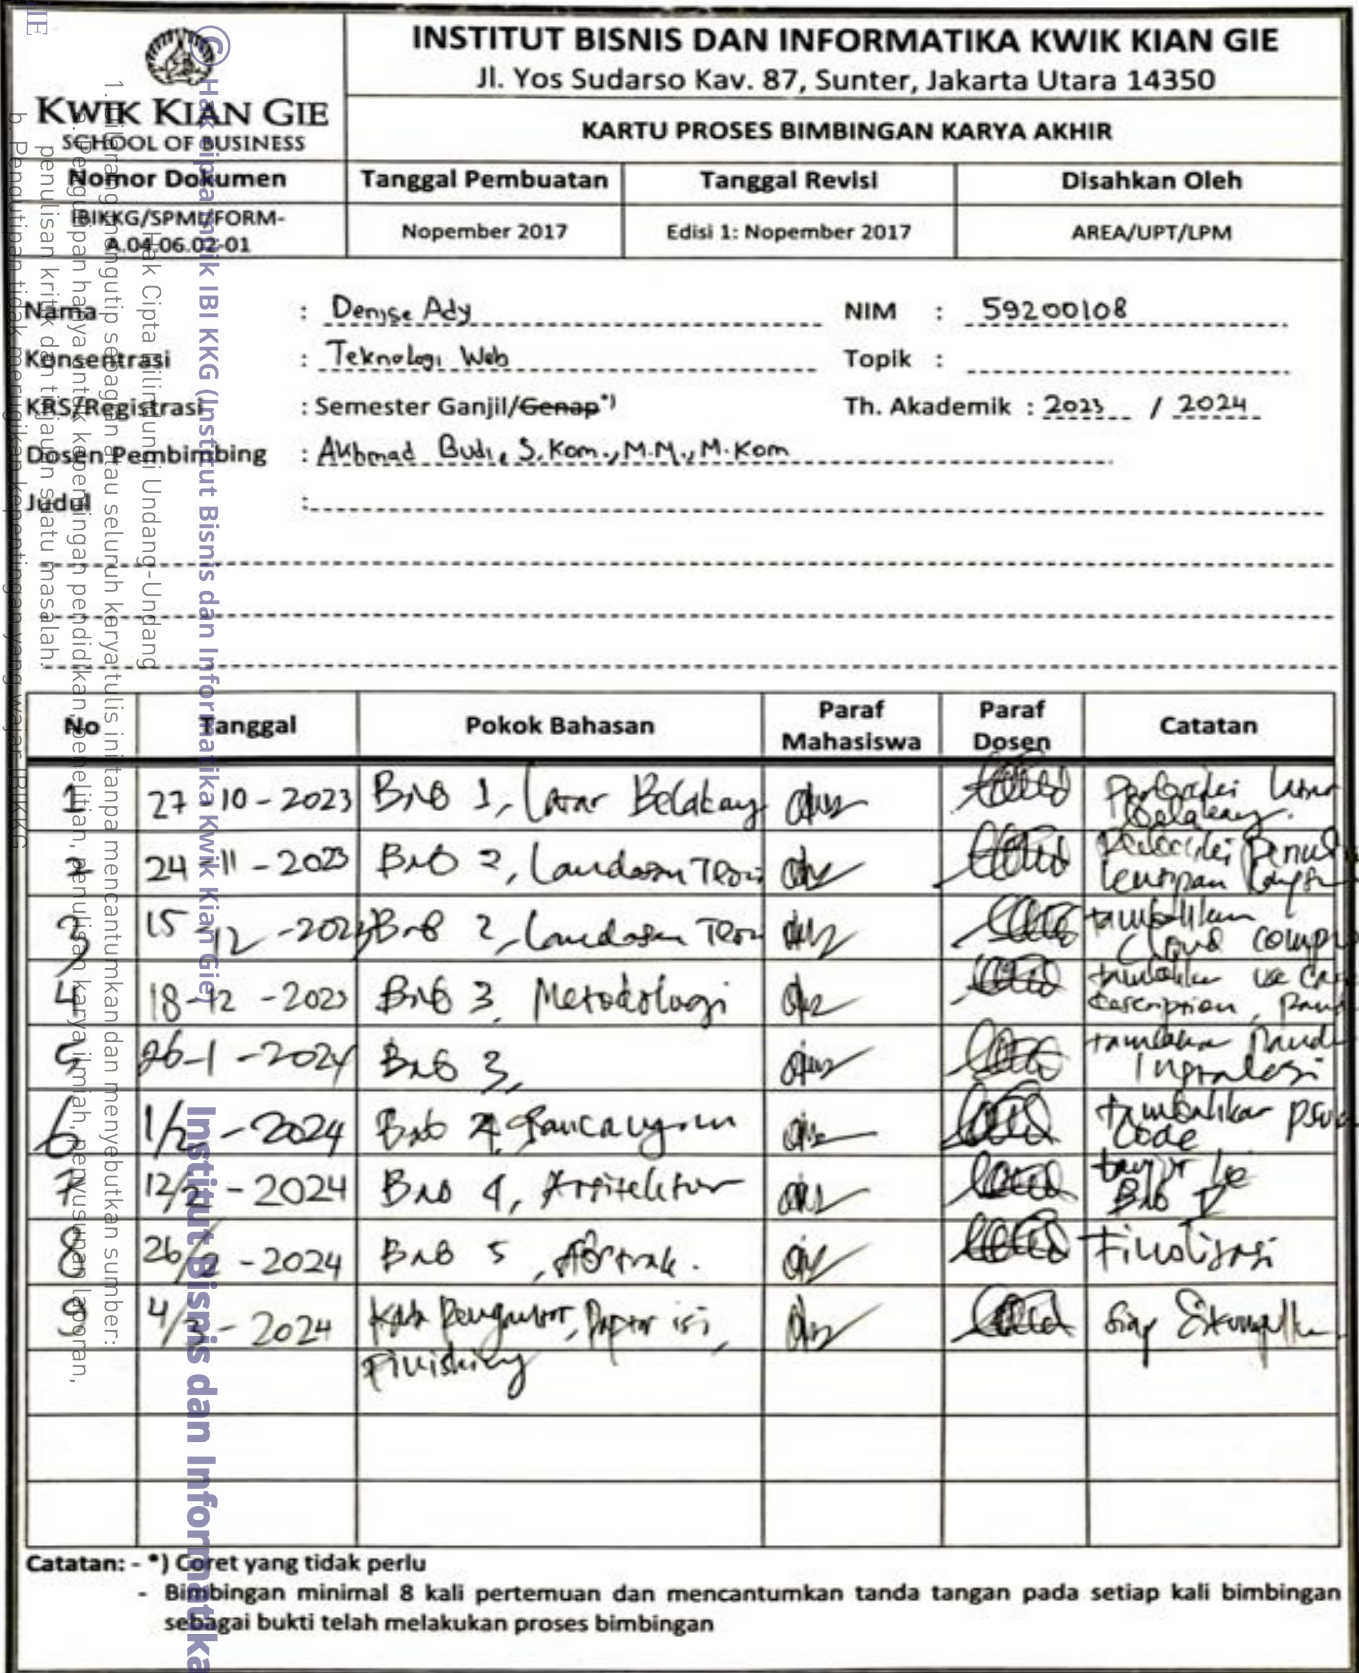 KWIK KIAN GIE
SCHOOL OF BUSINESS
INSTITUT BISNIS DAN INFORMATIKA KWIK KIAN GIE
Jl. Yos Sudarso Kav. 87, Sunter, Jakarta Utara 14350
KARTU PROSES BIMBINGAN KARYA AKHIR
Nomor Dokumen Tanggal Pembuatan Tanggal Revisi Disahkan Oleh
IBIKKG/SPMI/FORM-
A.04.06.02-01 Nopember 2017 Edisi 1: Nopember 2017 AREA/UPT/LPM
Nama : Denise Ady NIM : 59200108
Konsentrasi : Teknologi Web Topik :
KRS/Registrasi : Semester Ganjil/Genap*) Th. Akademik : 2023 / 2024
Dosen Pembimbing : Akhmad Budi, S.Kom., M.M., M.Kom
Judul :
No Tanggal Pokok Bahasan Paraf Mahasiswa Paraf Dosen Catatan
1 27-10-2023 BAB 1, Latar Belakang Perbaiki Latar
Belakang.
2 24-11-2023 BAB 2, Landasan Teori
3 15-12-2023 BAB 2, Landasan Teori tambahkan
Cloud
4 18-12-2023 BAB 3, Metodologi
description,
5 26-1-2024 BAB 3,
6 1/2-2024 Bab 4, Rancangan tambahkan
Code
7 12/2-2024 BAB 4, Arsitektur lanjut ke
BAB V
8 26/2-2024 BAB 5, Abstrak. Finalisasi
9 4/3-2024 Kata Pengantar, Daftar isi,
Finishing
Catatan: - *) Coret yang tidak perlu
- Bimbingan minimal 8 kali pertemuan dan mencantumkan tanda tangan pada setiap kali bimbingan
sebagai bukti telah melakukan proses bimbingan
© Hak cipta milik IBI KKG (Institut Bisnis dan Informatika Kwik Kian Gie)
Institut Bisnis dan Informatika
Hak Cipta Dilindungi Undang-Undang
1. Dilarang mengutip sebagian atau seluruh karya tulis ini tanpa mencantumkan dan menyebutkan sumber:
a. Pengutipan hanya untuk kepentingan pendidikan, penelitian, penulisan karya ilmiah, penyusunan laporan,
penulisan kritik dan tinjauan suatu masalah.
b. Pengutipan tidak merugikan kepentingan yang wajar IBIKKG
GIE